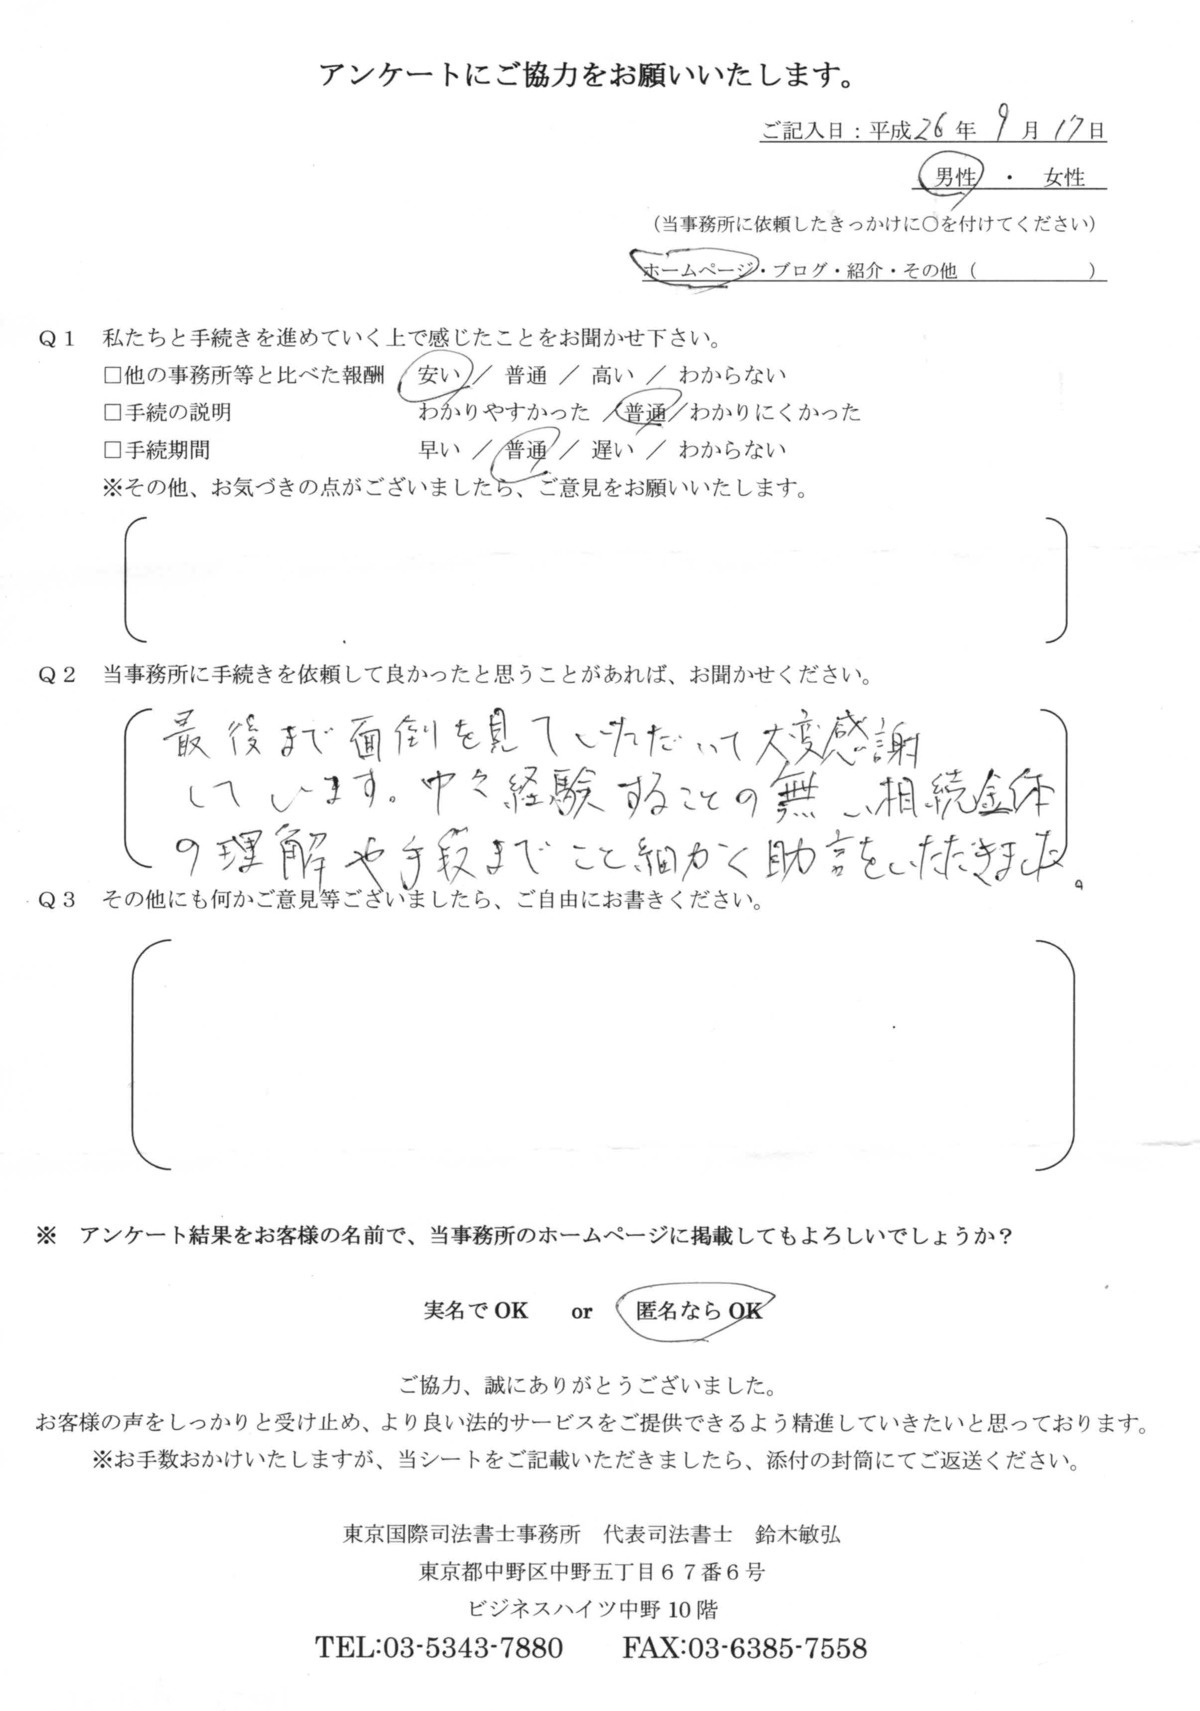 アンケートにご協力をお願いいたします。
ご記入日：平成26年 9月 17日
男性 ・ 女性
（当事務所に依頼したきっかけに〇を付けてください）
ホームページ・ブログ・紹介・その他（ ）
Q1 私たちと手続きを進めていく上で感じたことをお聞かせ下さい。
□他の事務所等と比べた報酬 安い ／ 普通 ／ 高い ／ わからない
□手続の説明 わかりやすかった ／普通／わかりにくかった
□手続期間 早い ／ 普通 ／ 遅い ／ わからない
※その他、お気づきの点がございましたら、ご意見をお願いいたします。
Q2 当事務所に手続きを依頼して良かったと思うことがあれば、お聞かせください。
最後まで面倒を見ていただいて大変感謝
しています。中々経験することの無い相続全体
の理解や手段までこと細かく助言をいただきました。
Q3 その他にも何かご意見等ございましたら、ご自由にお書きください。
※ アンケート結果をお客様の名前で、当事務所のホームページに掲載してもよろしいでしょうか？
実名で OK or 匿名なら OK
ご協力、誠にありがとうございました。
お客様の声をしっかりと受け止め、より良い法的サービスをご提供できるよう精進していきたいと思っております。
※お手数おかけいたしますが、当シートをご記載いただきましたら、添付の封筒にてご返送ください。
東京国際司法書士事務所 代表司法書士 鈴木敏弘
東京都中野区中野五丁目６７番６号
ビジネスハイツ中野 10 階
TEL:03-5343-7880 FAX:03-6385-7558